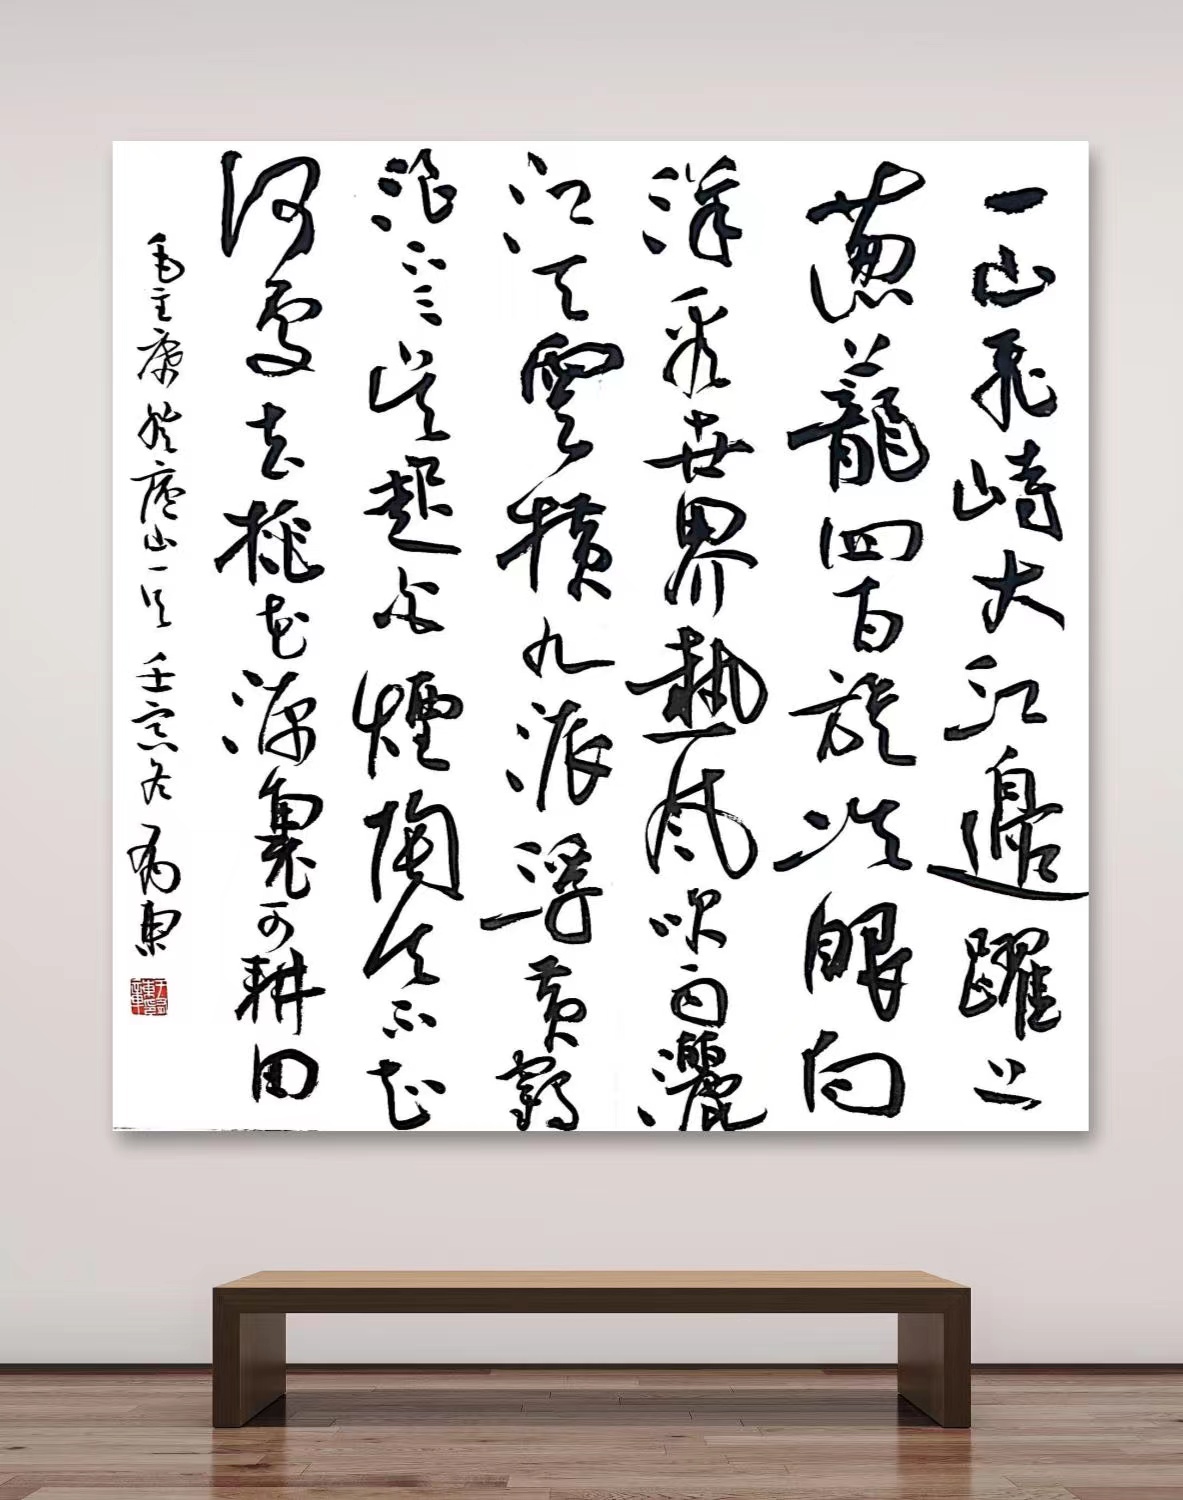 一山飛峙大江邊躍上
蔥蘢四百旋冷眼向
洋看世界熱風吹雨灑
江天雲橫九派浮黃鶴
浪下三吳起白煙陶令不知
何處去桃花源裏可耕田
毛主席登廬山一首 壬寅冬 東